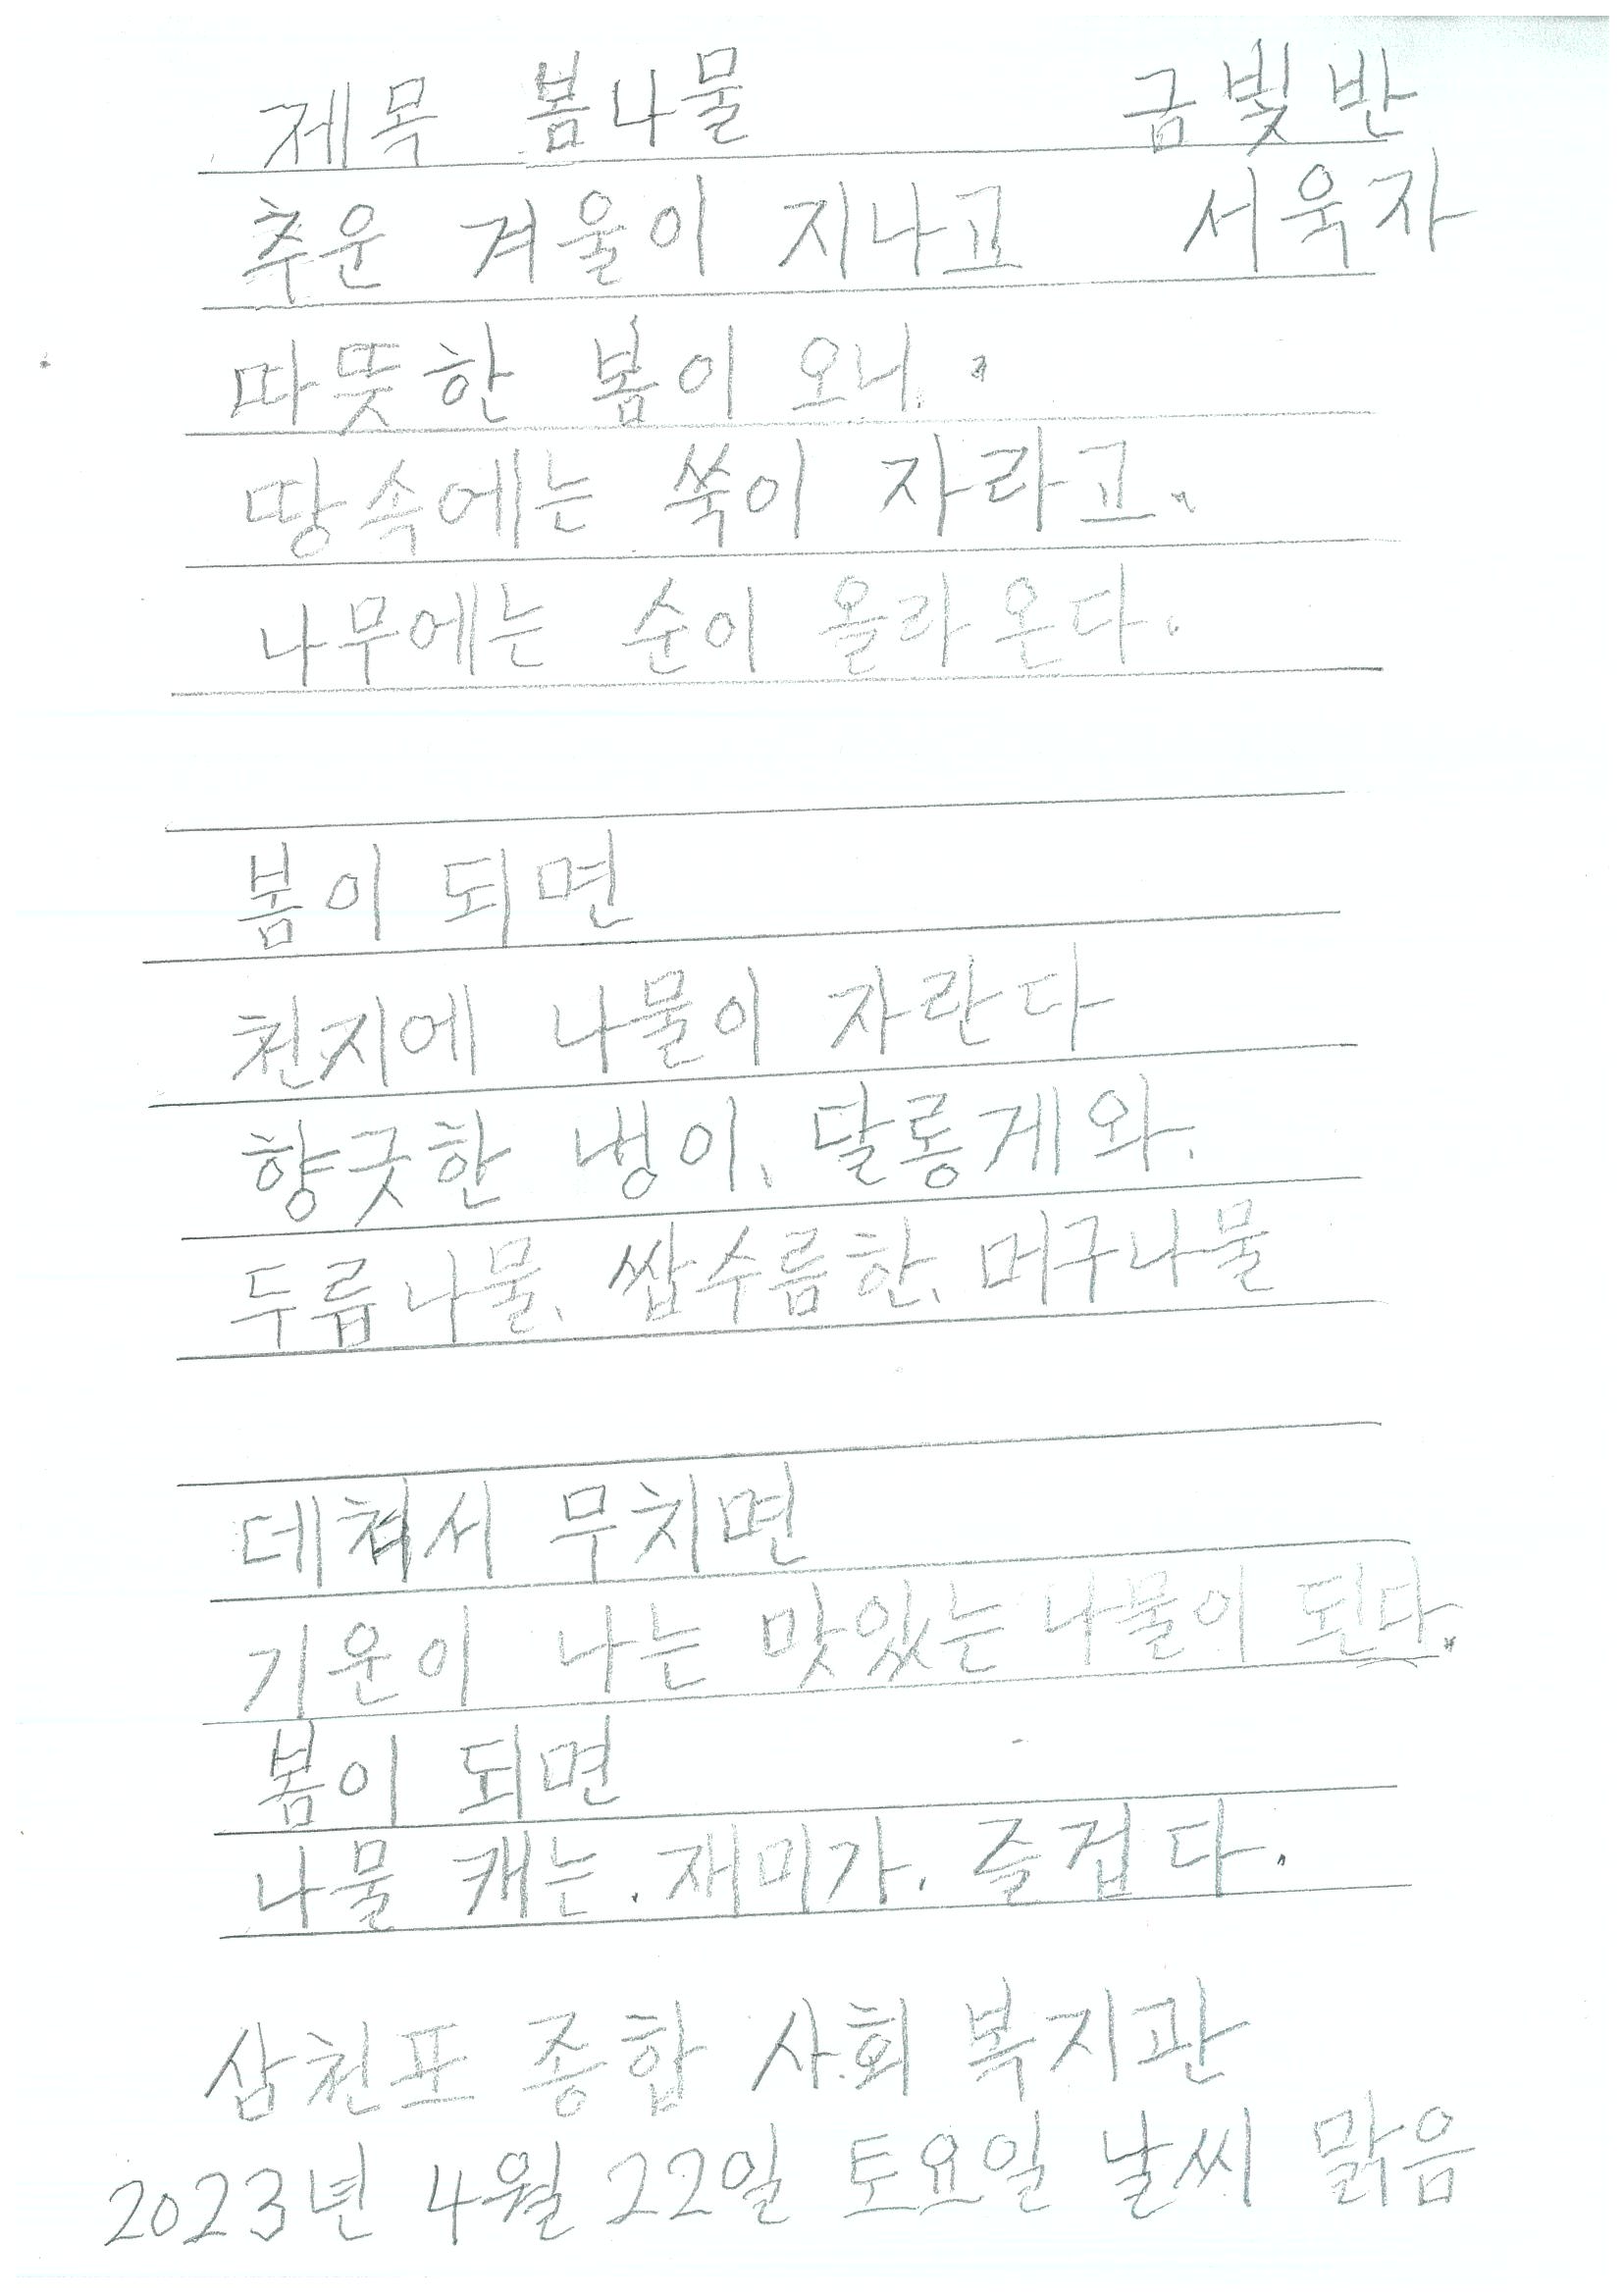 제목 봄나물 금빛반
추운 겨울이 지나고 서욱자
따뜻한 봄이 오니.
땅속에는 쑥이 자라고.
나무에는 순이 올라 온다.
봄이 되면
천지에 나물이 자란다
향긋한 냉이、달롱게와.
두릅나물、쌉수름한、머구나물
데쳐서 무치면
기운이 나는 맛있는 나물이 된다.
봄이 되면
나물 캐는.재미가.즐겁다.
삼천포 종합 사회 복지관
2023년 4월 22일 토요일 날씨 맑음